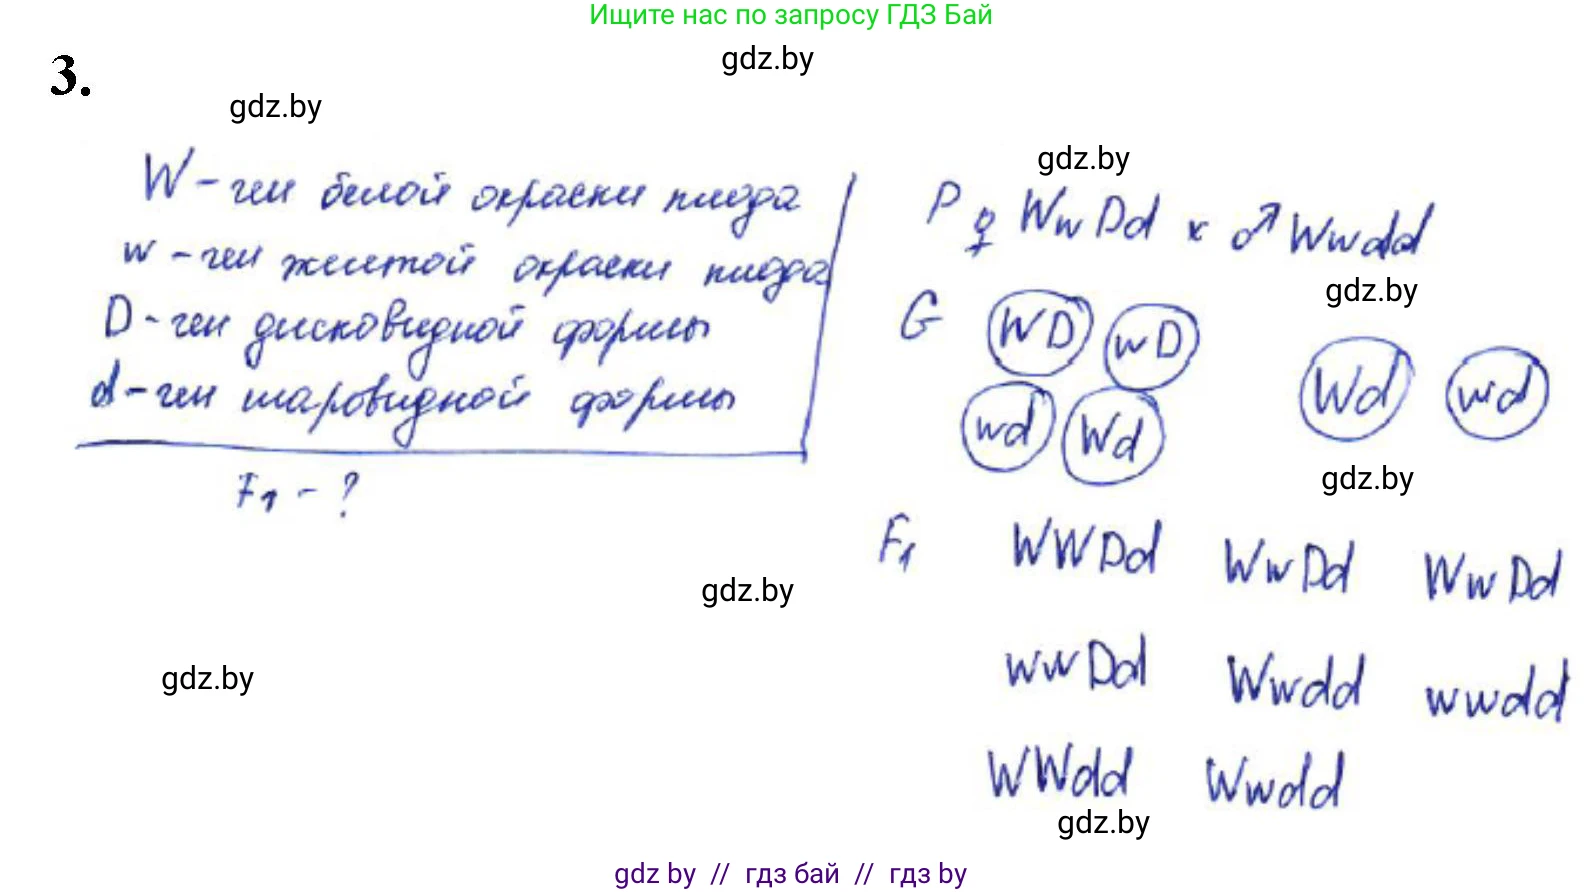 Ищите нас по запросу ГДЗ Бай
gdz.by
3.
gdz.by
W - ген белой окраски плода
w - ген желтой окраски плода
D - ген дисковидной формы
d - ген шаровидной формы
F₁ - ?
gdz.by
P ♀ WwDd x ♂ Wwdd
gdz.by
G WD wD Wd wd
wd Wd
gdz.by
F₁ WWDd WwDd WwDd
gdz.by
wwDd Wwdd wwdd
gdz.by
WWdd Wwdd
gdz.by
gdz by // гдз бай // гдз by